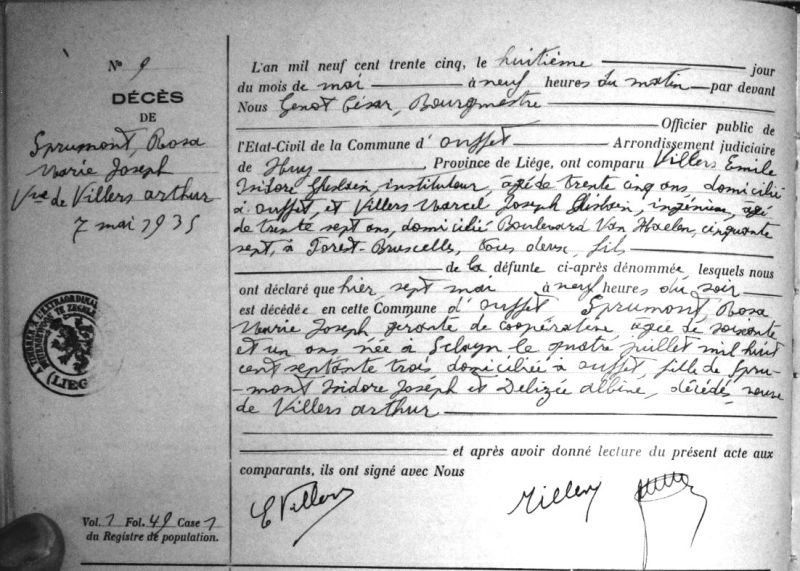 N° 9
DÉCÈS
DE
Sprumont, Rosa
Marie Joseph
Vve de Villers arthur
7 mai 1935
LIEG
Vol. 1 Fol. 49 Case 1
du Registre de population.
L'an mil neuf cent trente cinq, le huitième jour
du mois de mai à neuf heures du matin par devant
Nous Genot César, Bourgmestre
Officier public de
l'Etat-Civil de la Commune d'ouffet Arrondissement judiciaire
de Huy, Province de Liége, ont comparu Villers Emile
Isidore Ghislain, instituteur, agé de trente cinq ans, domicilié
à ouffet, et Villers Marcel Joseph Ghislain, ingénieur, agé
de trente sept ans, domicilié Boulevard Van Haelen, cinquante
sept, à Forest-Bruxelles, tous deux, fils
de la défunte ci-après dénommée, lesquels nous
ont déclaré que hier, sept mai à neuf heures du soir
est décédée en cette Commune d'ouffet Sprumont, Rosa
Marie Joseph gérante de coopérative agée de soixante
et un ans née à Sclayn le quatre juillet mil huit
cent septante trois domiciliée à ouffet, fille de Spru-
-mont Isidore Joseph et Delizée albine, décédés, veuve
de Villers arthur
et après avoir donné lecture du présent acte aux
comparants, ils ont signé avec Nous
E Villers
Villers